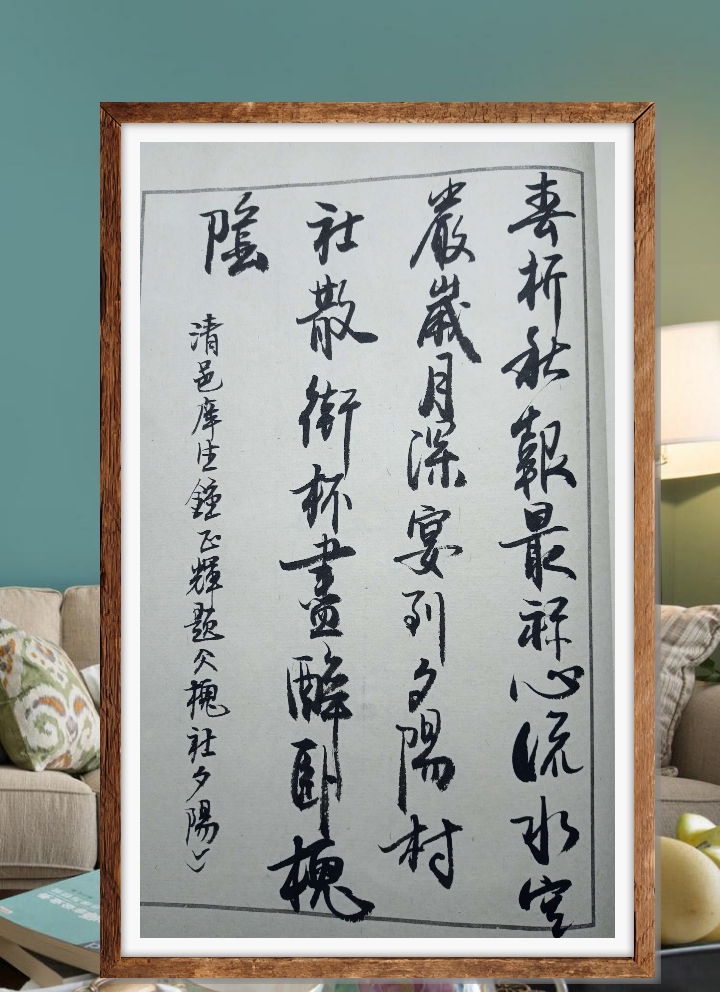 春祈秋報最形心流水空
嚴歲月深宴列夕陽村
社散銜杯盡醉卧槐
陰
清邑庠生鍾正輝題父槐社夕陽